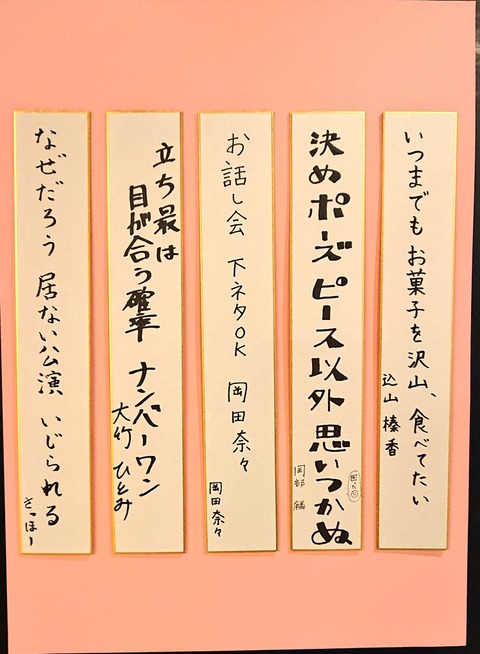 いつまでも お菓子を沢山、食べてたい
込山 榛香
決めポーズ ピース以外 思いつかぬ
岡部 麟
お話し会 下ネタOK 岡田奈々
岡田奈々
立ち最は
目が合う確率 ナンバーワン
大竹 ひとみ
なぜだろう 居ない公演 いじられる
さっほー